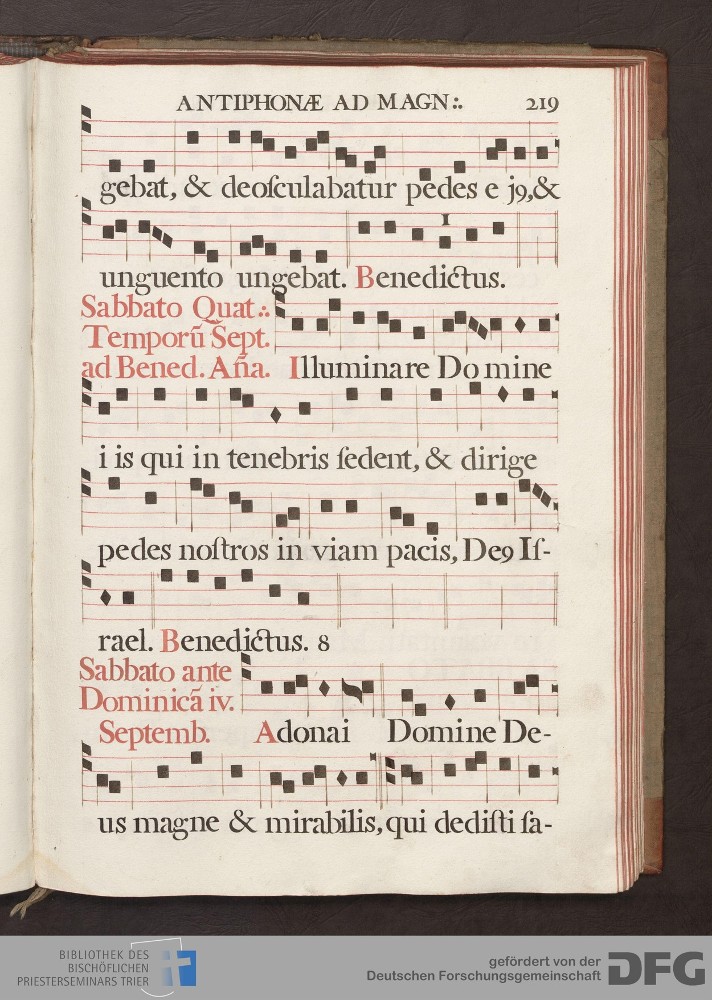 ANTIPHONÆ AD MAGN:. 219
gebat, & deoſculabatur pedes e jꝯ, &
1
unguento ungebat. Benedictus.
Sabbato Quat.:
Temporũ Sept.
ad Bened. Añа. Illuminare Do mine
i is qui in tenebris ſedent, & dirige
pedes noſtros in viam pacis, Deꝯ Iſ-
rael. Benedictus. 8
Sabbato ante
Dominicã iv.
Septemb. Adonai Domine De-
us magne & mirabilis, qui dediſti ſa-
BIBLIOTHEK DES
BISCHÖFLICHEN
PRIESTERSEMINARS TRIER
gefördert von der
Deutschen Forschungsgemeinschaft
DFG